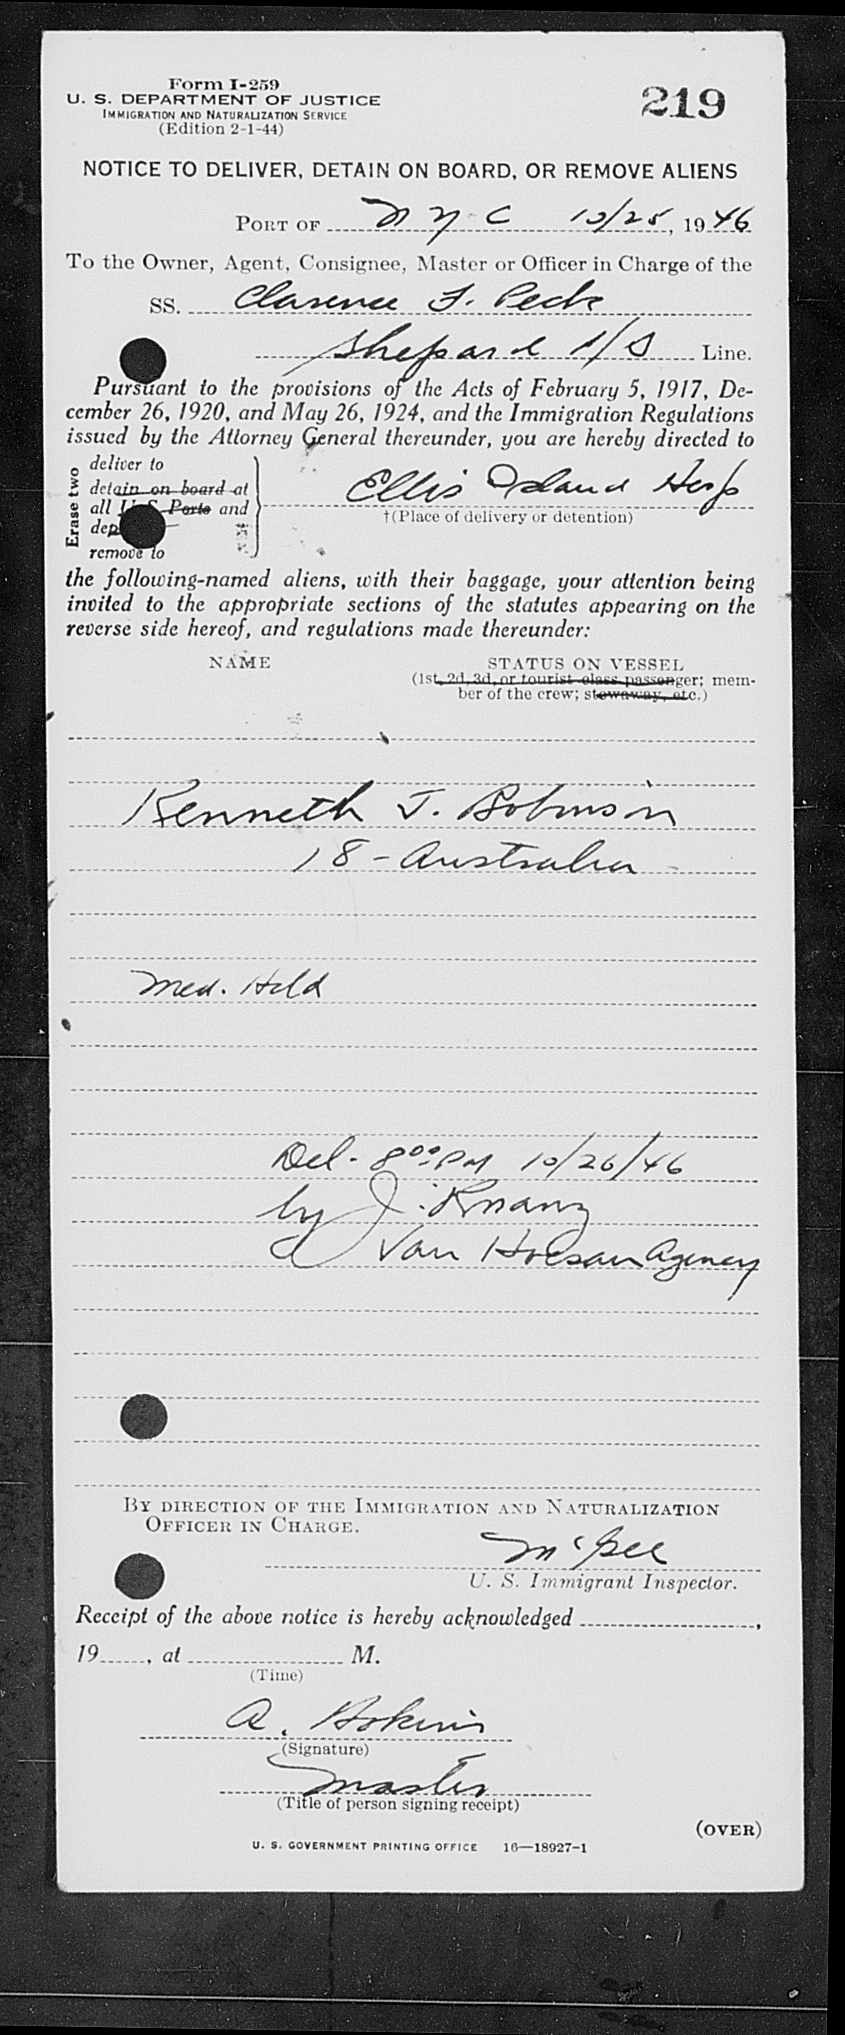 Form I-259
U. S. DEPARTMENT OF JUSTICE
IMMIGRATION AND NATURALIZATION SERVICE
(Edition 2-1-44)
219
NOTICE TO DELIVER, DETAIN ON BOARD, OR REMOVE ALIENS
PORT OF N Y C 10/25, 1946
To the Owner, Agent, Consignee, Master or Officer in Charge of the
SS. Clarence F. Peck
Shepard S/S Line.
Pursuant to the provisions of the Acts of February 5, 1917, De-
cember 26, 1920, and May 26, 1924, and the Immigration Regulations
issued by the Attorney General thereunder, you are hereby directed to
Erase two
deliver to
detain on board at
all U S Ports and
dep
remove to
Ellis Island Hosp
†(Place of delivery or detention)
the following-named aliens, with their baggage, your attention being
invited to the appropriate sections of the statutes appearing on the
reverse side hereof, and regulations made thereunder:
NAME STATUS ON VESSEL
(1st, 2d, 3d, or tourist class passenger; mem-
ber of the crew; stowaway, etc.)
Kenneth J. Robinson
18 - Australia
Med. Held
Del. 8 00 PM 10/26/46
by J.
Van Agency
BY DIRECTION OF THE IMMIGRATION AND NATURALIZATION
OFFICER IN CHARGE.
McGee
U. S. Immigrant Inspector.
Receipt of the above notice is hereby acknowledged ,
19 , at M.
(Time)
A.
(Signature)
Master
(Title of person signing receipt)
(OVER)
U. S. GOVERNMENT PRINTING OFFICE 16—18927-1